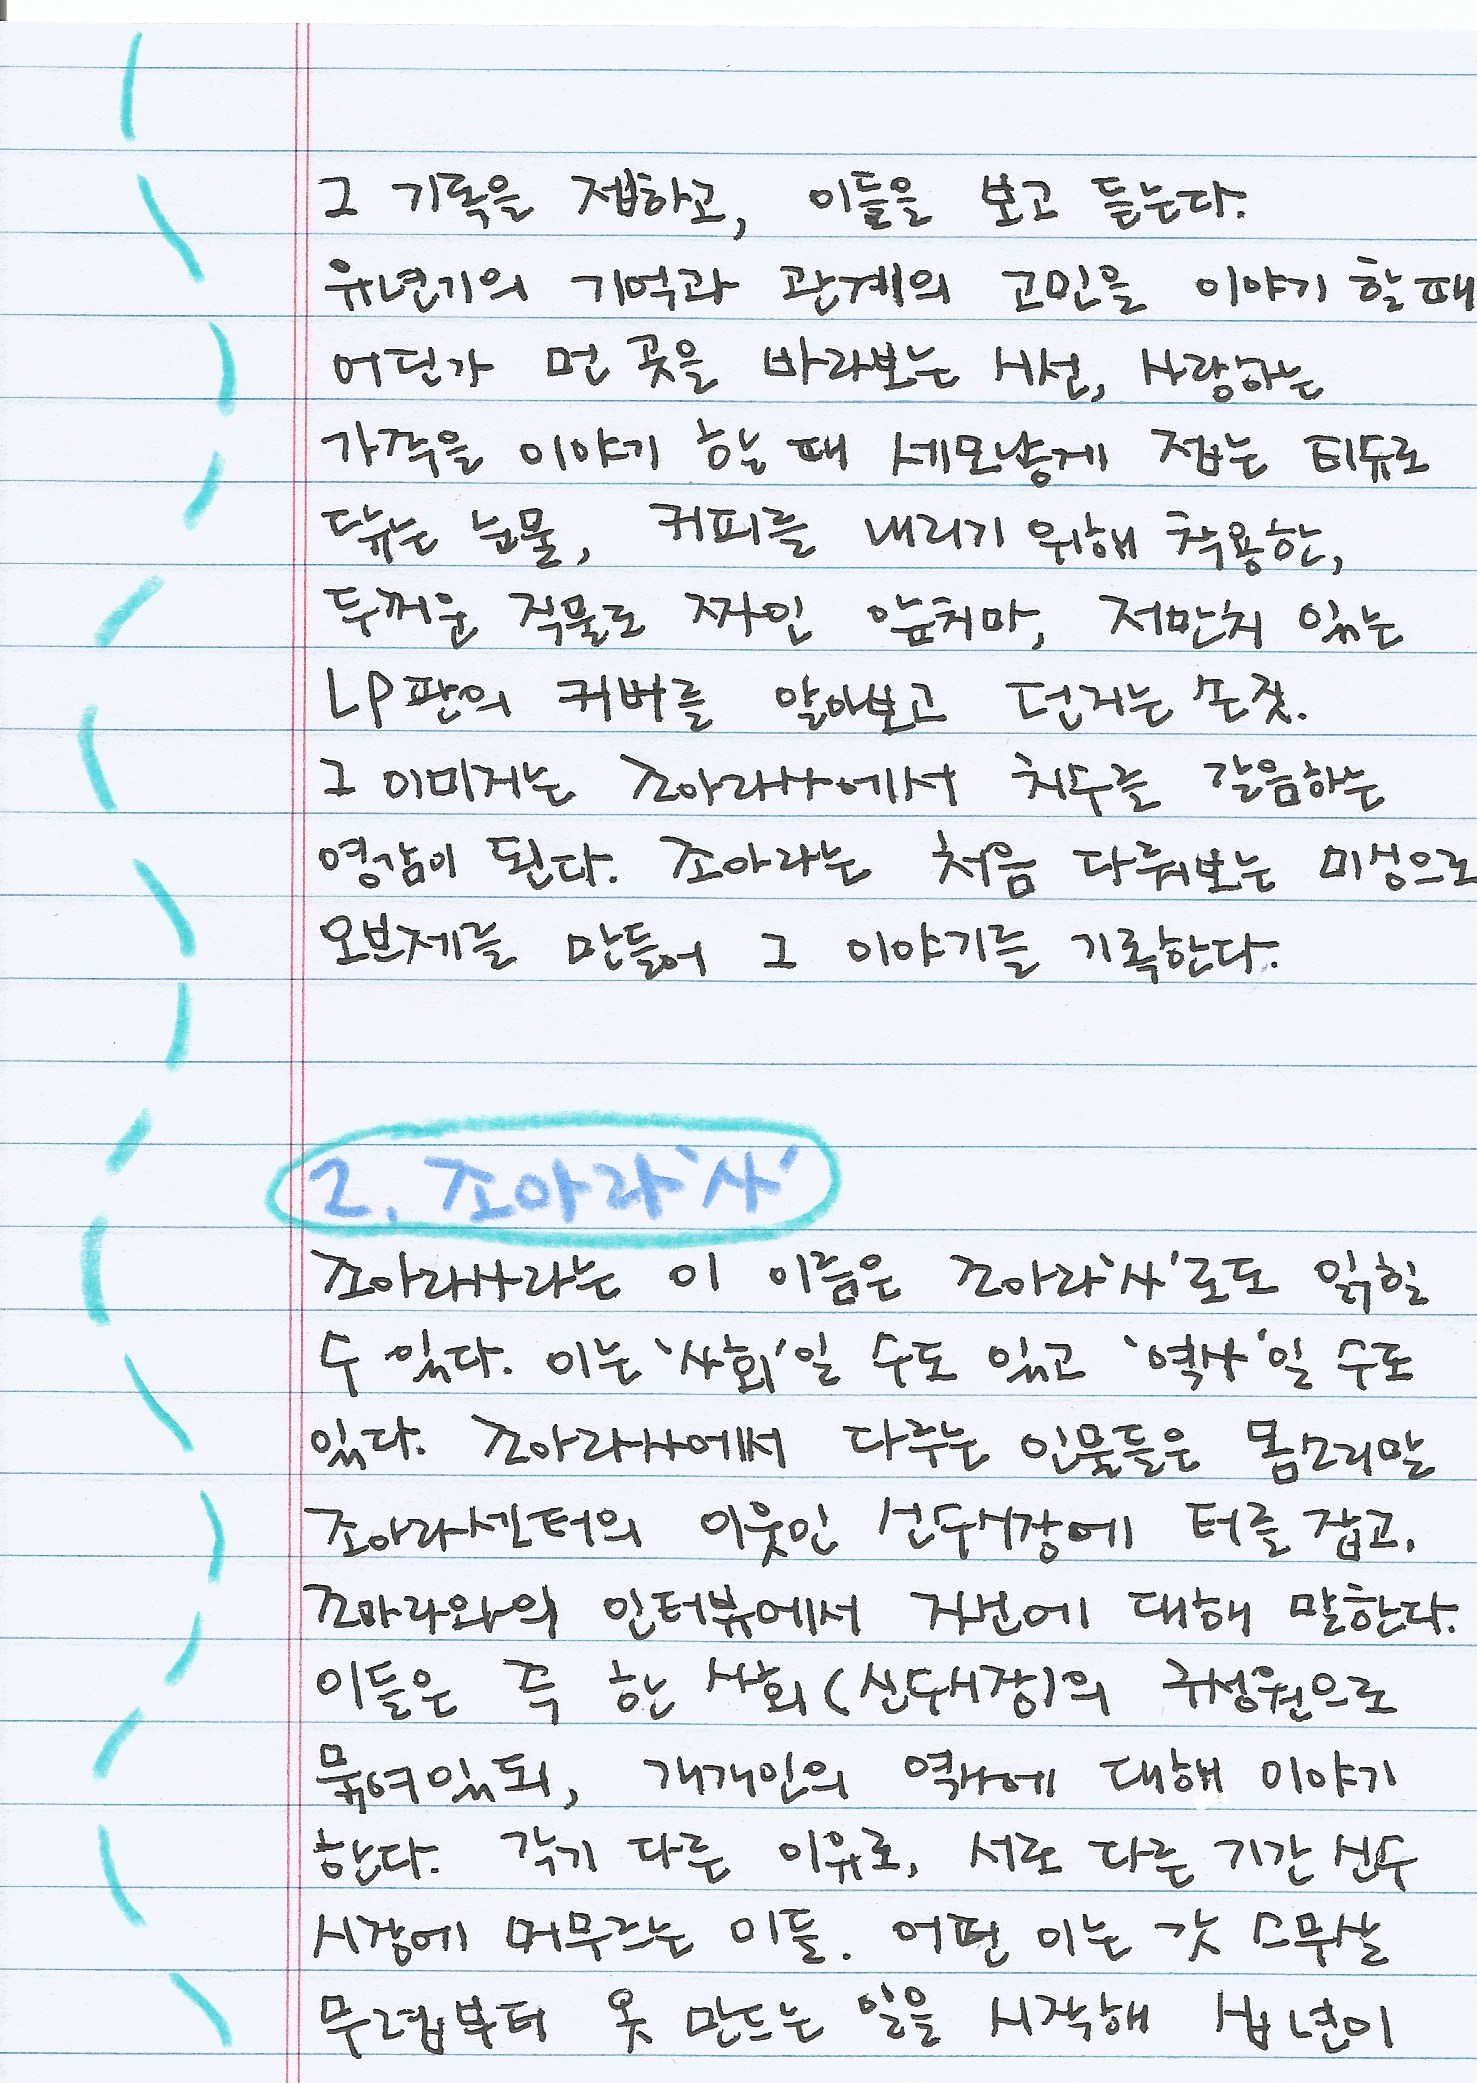 그 기록을 접하고, 이들을 보고 듣는다.
유년기의 기억과 관계의 고민을 이야기 할 때
어딘가 먼 곳을 바라보는 시선, 사랑하는
가족을 이야기 할 때 세모낳게 접는 티슈로
닦는 눈물, 커피를 내리기 위해 착용한,
두꺼운 직물로 짜인 앞치마, 저만치 있는
LP판의 커버를 알아보고 던지는 손짓.
그 이미지는 조아라사에서 치수를 갈음하는
영감이 된다. 조아라는 처음 다뤄보는 미싱으로
오브제를 만들어 그 이야기를 기록한다.
2. 조아라'사'
조아라사라는 이 이름은 조아라'사'로도 읽힐
수 있다. 이는 '사회'일 수도 있고 '역사'일 수도
있다. 조아라사에서 다루는 인물들은 몸소리말
조아라센터의 이웃인 신수시장에 터를 잡고,
조아라와의 인터뷰에서 자신에 대해 말한다.
이들은 즉 한 사회(신수시장)의 구성원으로
묶여있되, 개개인의 역사에 대해 이야기
한다. 각기 다른 이유로, 서로 다른 기간 신수
시장에 머무르는 이들. 어떤 이는 갓 스무살
무렵부터 옷 만드는 일을 시작해 십년이